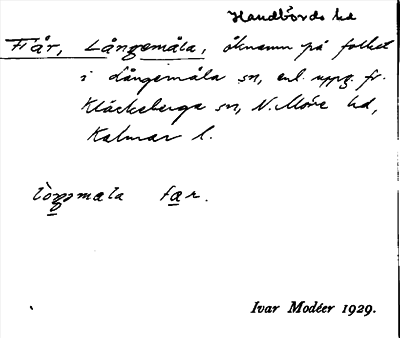 Handbörds hd
Får, Långemåla, öknamn på folket
i Långemåla sn, enl. uppg. fr.
Kläckeberga sn, N. Möre hd,
Kalmar l.
får.
Ivar Modéer 1929.